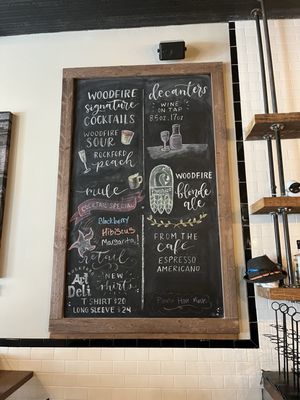 WOODFIRE
signature
COCKTAILS
WOODFIRE
SOUR
ROCKFORD
peach
mule
COCKTAIL SPECIAL
Blackberry
Hibiscus
Margarita
retail
ROCKFORD
Art
Deli
NEW
shirts
T SHIRT $20
LONG SLEEVE $24
decanters
WINE
ON TAP
8.5oz. 17oz
WOODFIRE
blonde
ALE
FROM THE
cafe
ESPRESSO
AMERICANO